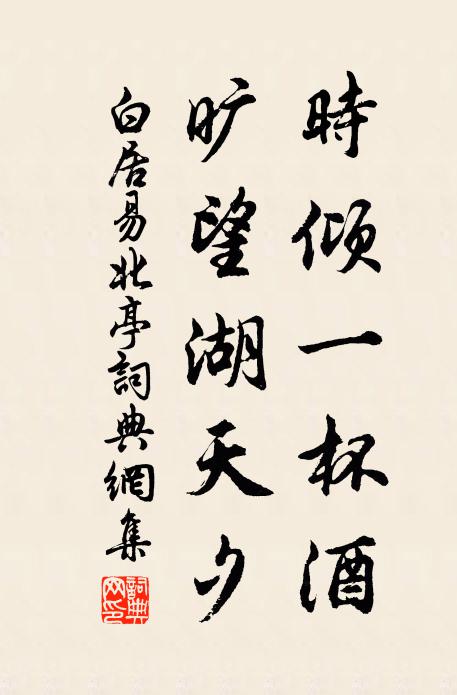 時傾一杯酒
旷望湖天夕
白居易北亭詞典網集
詞典网印